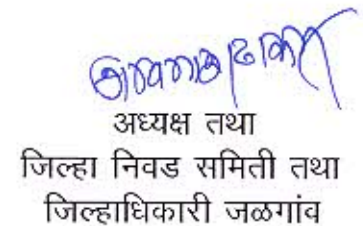 अध्यक्ष तथा
जिल्हा निवड समिती तथा
जिल्हाधिकारी जळगांव